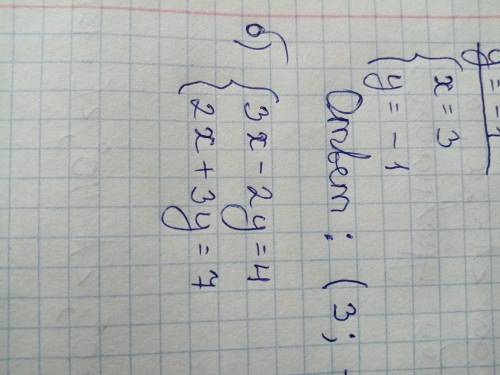 y = -1
{ x = 3
y = -1
Ответ: (3; -
б) { 3x - 2y = 4
2x + 3y = 7